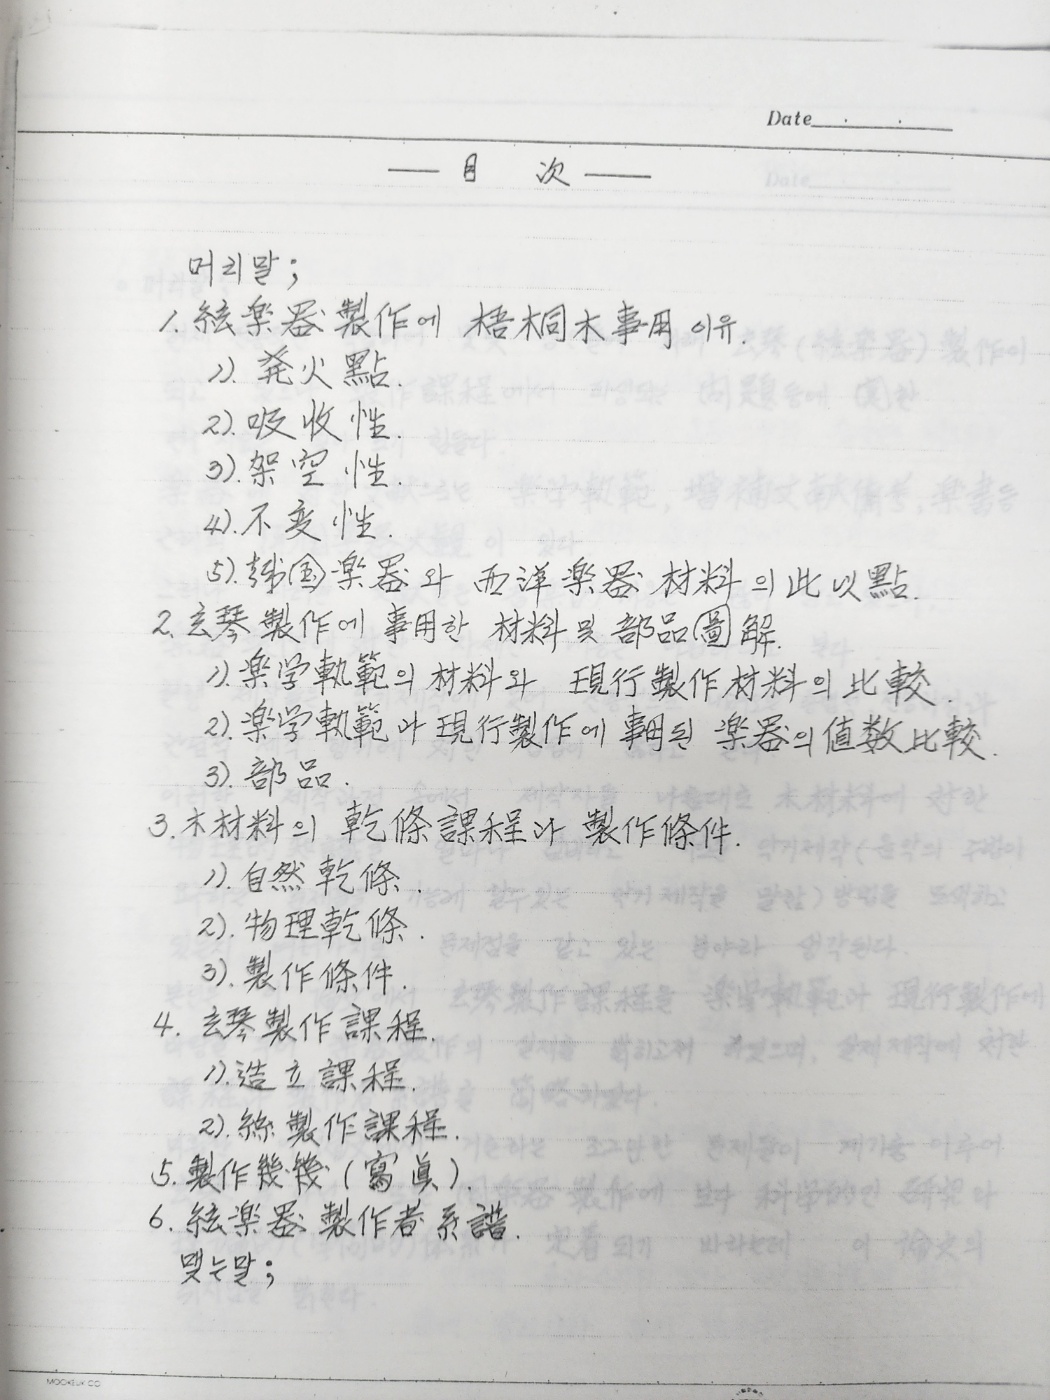 Date
— 目 次 —
머리말;
1. 絃楽器 製作에 梧桐木 事用 이유.
1). 発火點.
2). 吸收性.
3). 架空性.
4). 不変性.
5). 韓国楽器와 西洋楽器 材料의 此以點.
2. 玄琴製作에 事用한 材料 및 部品圖解.
1). 楽学軌範의 材料와 現行製作材料의 比較.
2). 楽学軌範과 現行製作에 事用된 楽器의 値数比較.
3). 部品.
3. 木材料의 乾條課程과 製作條件.
1). 自然乾條.
2). 物理乾條.
3). 製作條件.
4. 玄琴製作課程.
1). 造立課程.
2). 絲製作課程.
5. 製作幾 (寫眞).
6. 絃楽器 製作者 系譜.
맺는말;
MOOKEUK CO